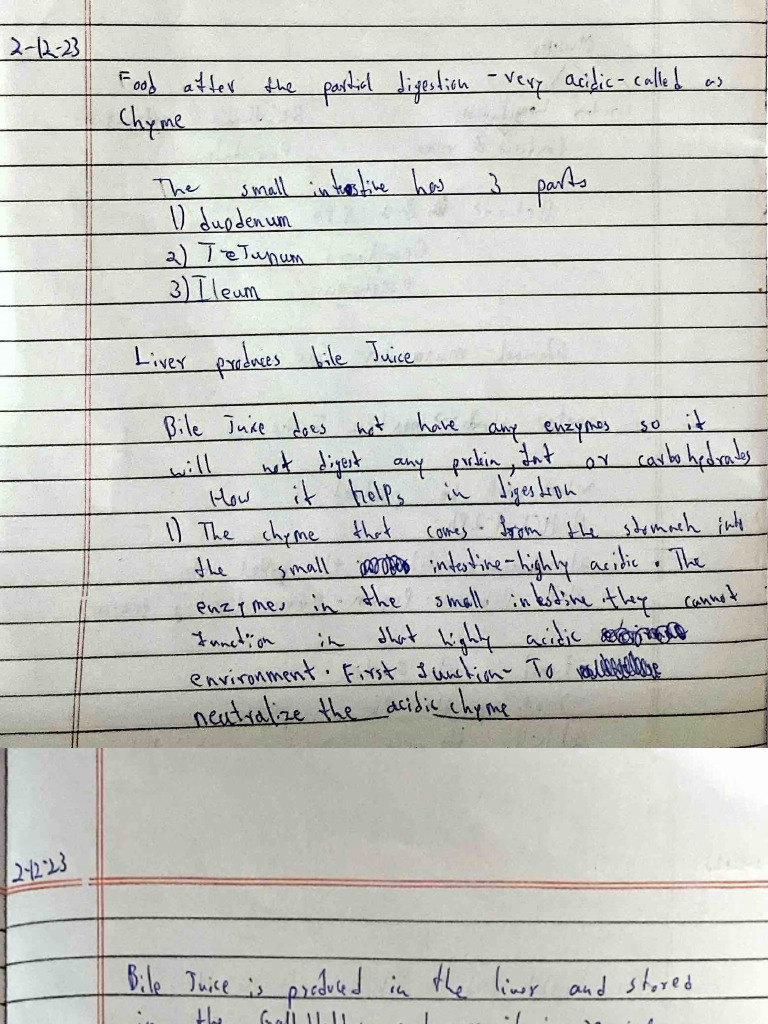 2-12-23
Food after the partial digestion - very acidic - called as
Chyme
The small intestine has 3 parts
1) duodenum
2) JeJunum
3) Ileum
Liver produces bile Juice
Bile Juice does not have any enzymes so it
will not digest any protein, fat or carbohydrates
How it helps in digestion
1) The chyme that comes from the stomach into
the small intestine - highly acidic. The
enzymes in the small intestine they cannot
function in that highly acidic
environment. First function - To
neutralize the acidic chyme
2-12-23
Bile Juice is produced in the liver and stored
in the